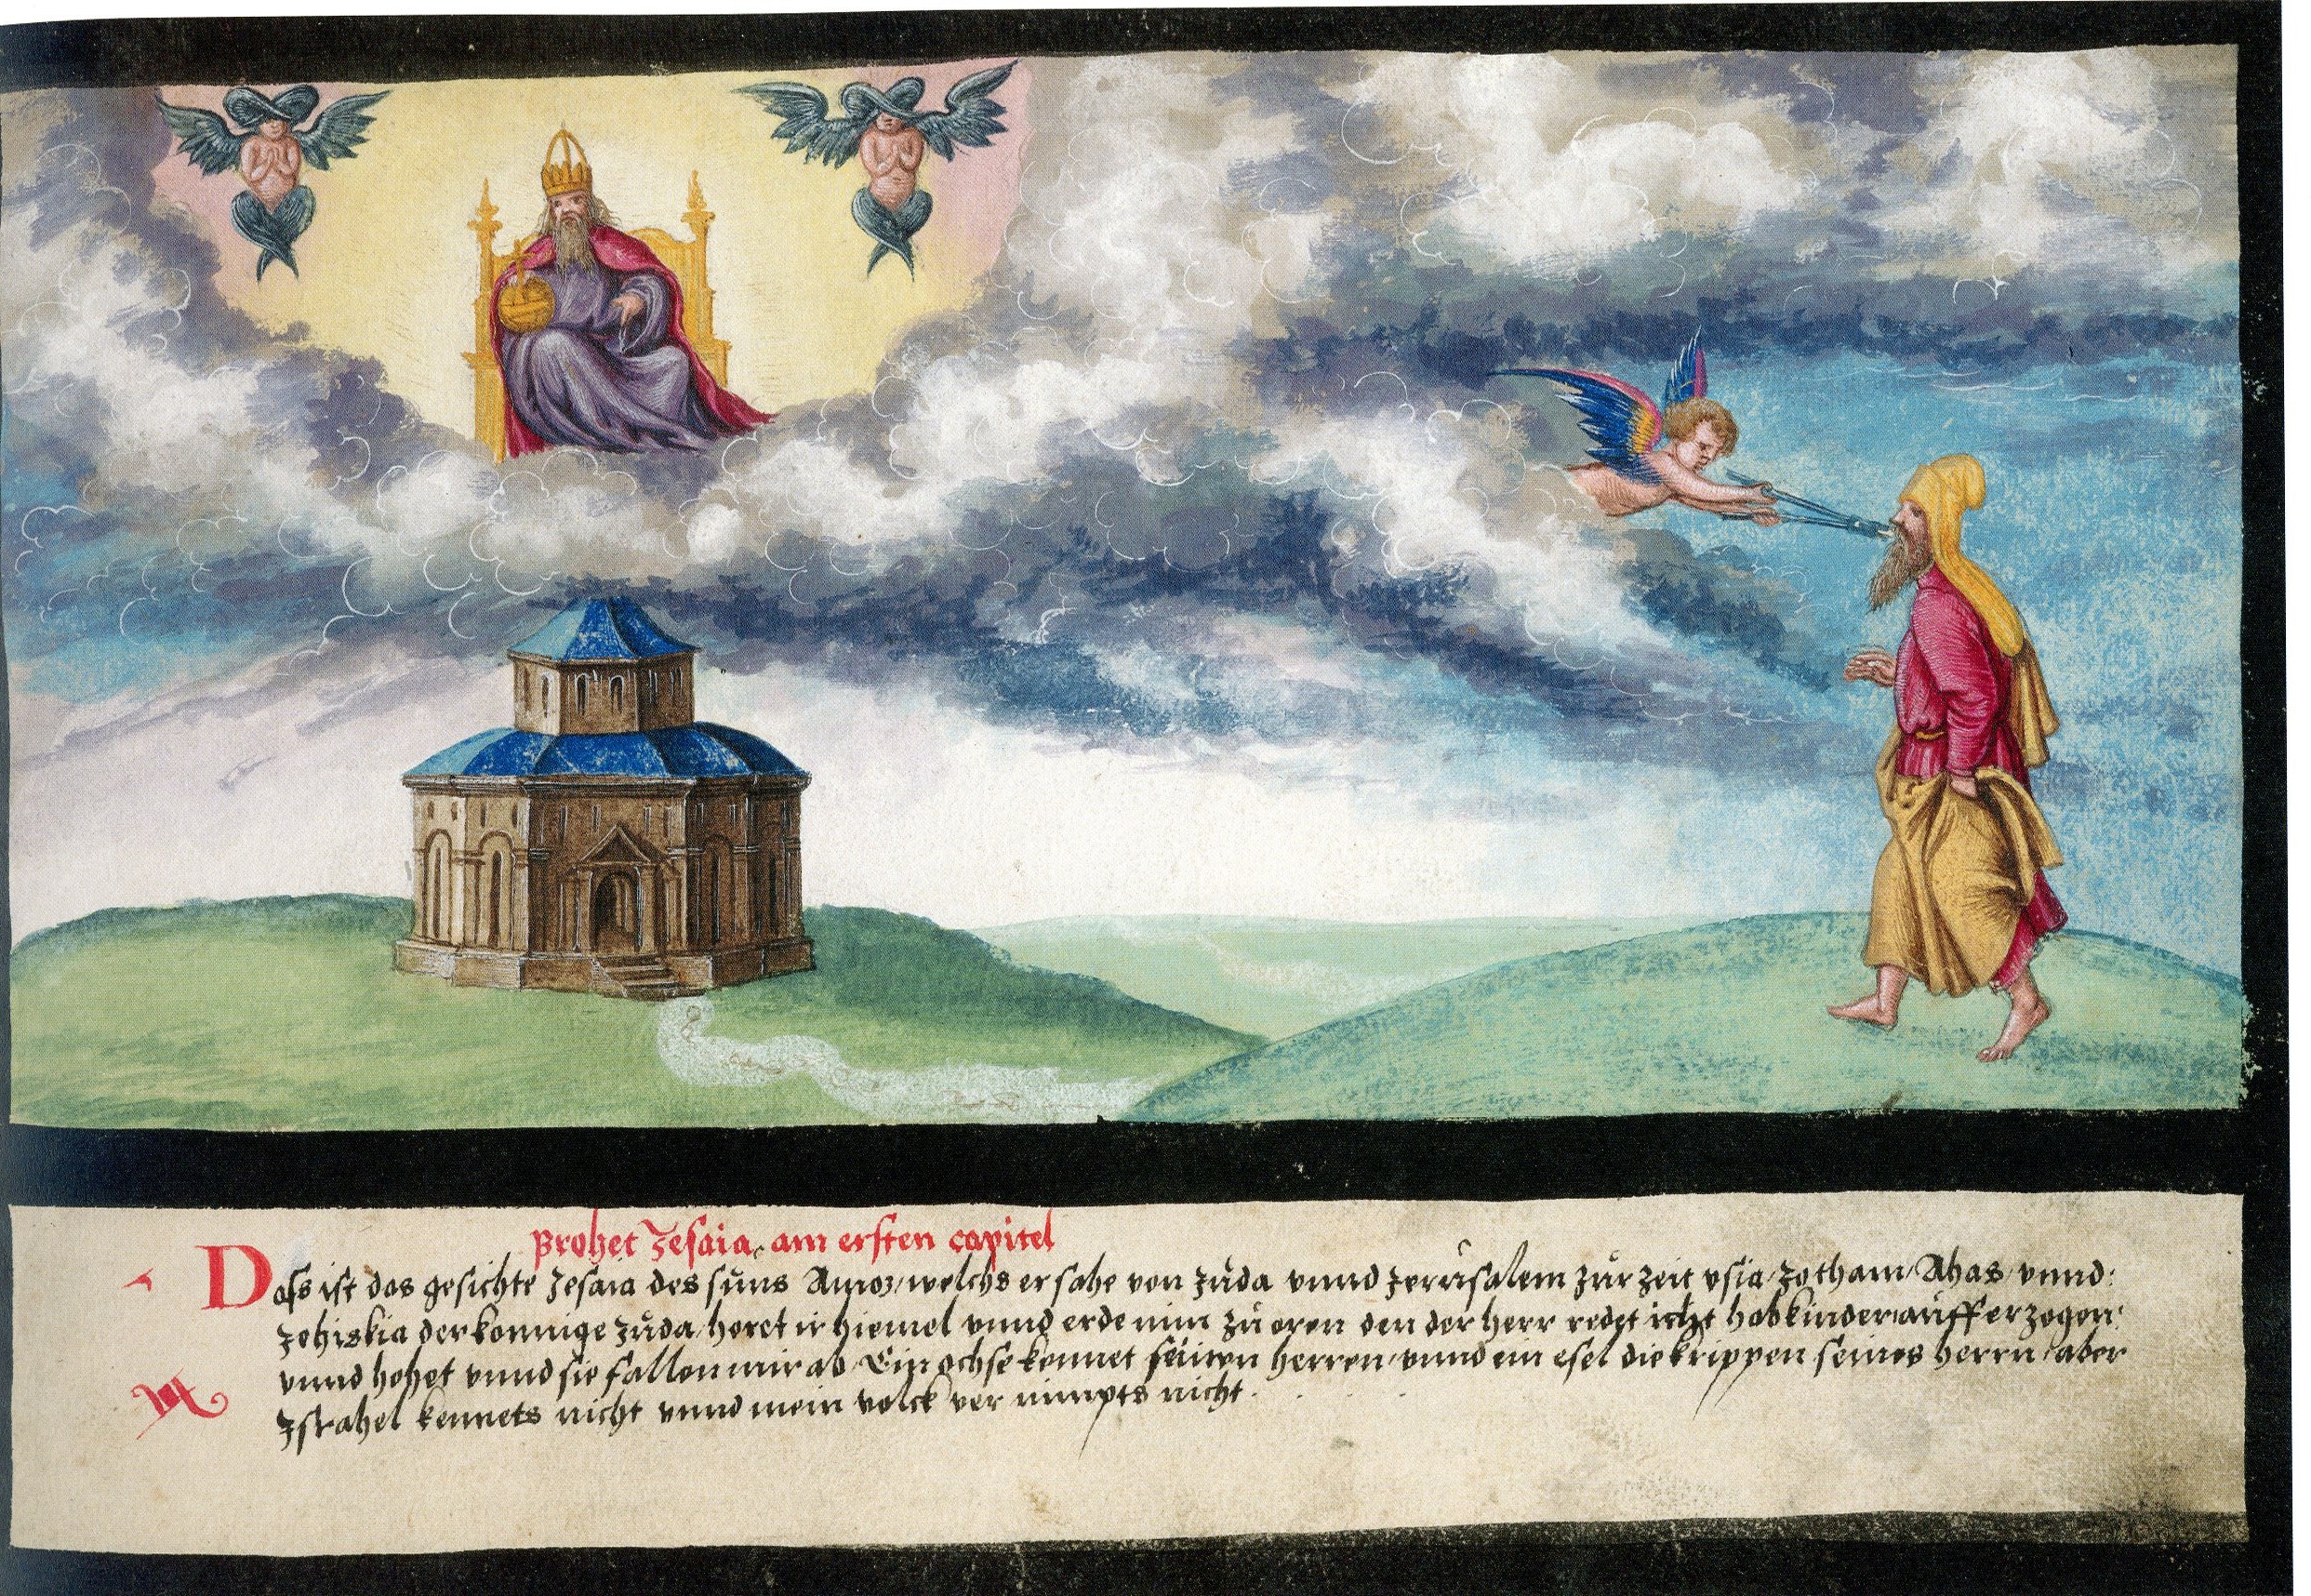 Prohet Jesaia am ersten capitel
Dass ist das gesichte Jesaia des suns Amoz/ welchs er sahe von Juda vnnd Jerusalem zur zeit vsia/ Jotham/ Ahas/ vnnd:
Jehiskia der konnige Juda/ horet ir hiemel vnnd erde nim zu oren den der herr redet ich hab kinder aufferzogen:
vnnd hohet vnnd sie fallen mir ab/ Ein ochse kennet seinen herren/ vnnd ein esel die krippen seines herrn/ aber
Jsrahel kennets nicht vnnd mein volck ver nimpts nicht.